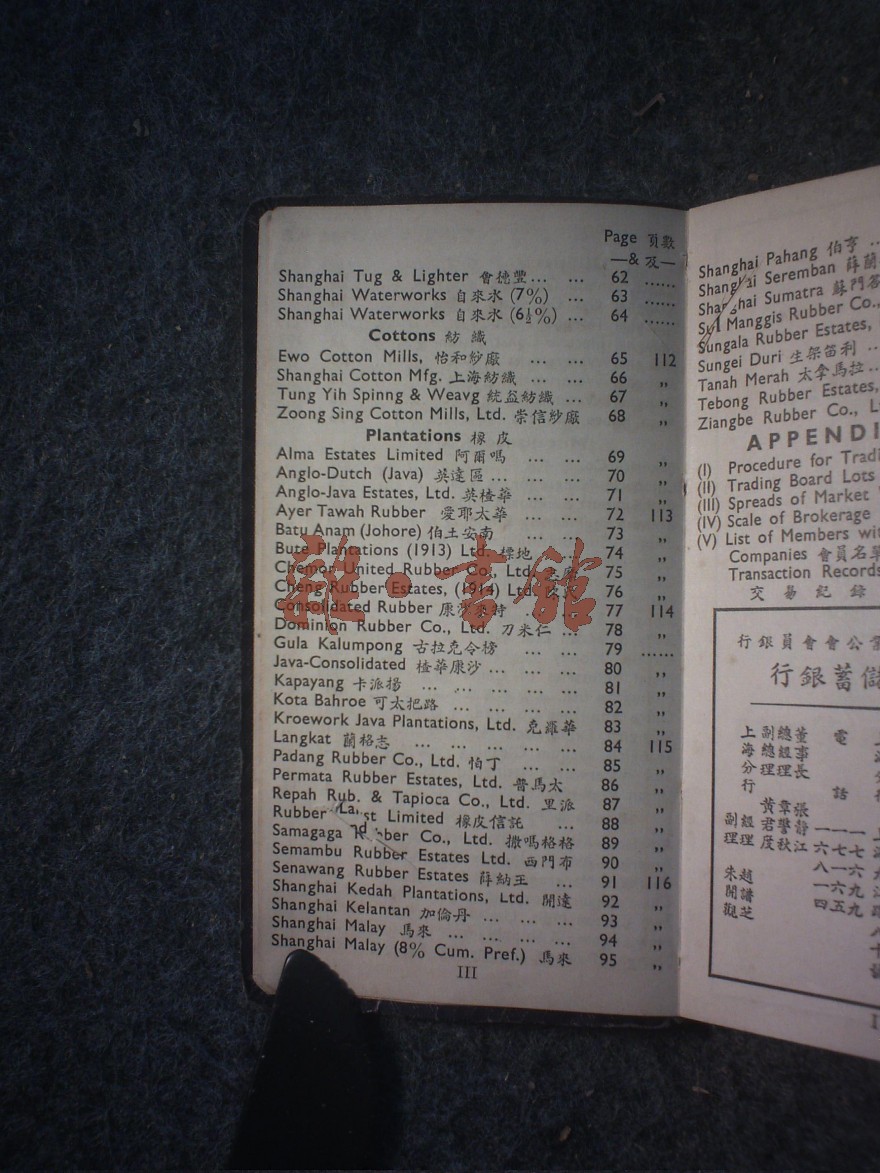 Page 頁數
—& 及—
Shanghai Tug & Lighter 會德豐... ... 62 ......
Shanghai Waterworks 自來水 (7%) ... 63 ......
Shanghai Waterworks 自來水 (6½%) ... 64 ......
Cottons 紡 織
Ewo Cotton Mills, 怡和紗廠 ... ... 65 112
Shanghai Cotton Mfg. 上海紡織 ... ... 66 ,,
Tung Yih Spinng & Weavg 統益紡織 ... 67 ,,
Zoong Sing Cotton Mills, Ltd. 崇信紗廠 68 ,,
Plantations 橡 皮
Alma Estates Limited 阿爾嗎 ... ... 69 ,,
Anglo-Dutch (Java) 英達區 ... ... ... 70 ,,
Anglo-Java Estates, Ltd. 英楂華 ... ... 71 ,,
Ayer Tawah Rubber 愛耶太華 ... ... 72 113
Batu Anam (Johore) 伯土安南 ... ... 73 ,,
Bute Plantations (1913) Ltd. 標地 ... 74 ,,
Chemor United Rubber Co., Ltd. 75 ,,
Cheng Rubber Estates, (1914) Ltd. 76 ,,
Consolidated Rubber 康沙來特 ... ... 77 114
Dominion Rubber Co., Ltd. 刀米仁 ... 78 ,,
Gula Kalumpong 古拉克令榜 ... ... 79 ......
Java-Consolidated 楂華康沙 ... ... ... 80 ,,
Kapayang 卡派揚 ... ... ... ... ... 81 ,,
Kota Bahroe 可太把路 ... ... ... ... 82 ,,
Kroework Java Plantations, Ltd. 克羅華 83 ,,
Langkat 蘭格志 ... ... ... ... ... 84 115
Padang Rubber Co., Ltd. 怕丁 ... ... 85 ,,
Permata Rubber Estates, Ltd. 普馬太 86 ,,
Repah Rub. & Tapioca Co., Ltd. 里派 87 ,,
Rubber st Limited 橡皮信託 ... 88 ,,
Samagaga bber Co., Ltd. 撒嗎格格 89 ,,
Semambu Rubber Estates Ltd. 西門布 90 ,,
Senawang Rubber Estates 薛納王 ... 91 116
Shanghai Kedah Plantations, Ltd. 開達 92 ,,
Shanghai Kelantan 加倫丹 ... ... ... 93 ,,
Shanghai Malay 馬來 ... ... ... ... 94 ,,
Shanghai Malay (8% Cum. Pref.) 馬來 95 ,,
III
雜·書館
Shanghai Pahang 伯亨 ...
Shanghai Seremban 薛蘭
Shanghai Sumatra 蘇門答
Manggis Rubber Co.,
Sungala Rubber Estates,
Sungei Duri 生架笛利 ...
Tanah Merah 太拿馬拉 ...
Tebong Rubber Estates,
Ziangbe Rubber Co., L
APPENDI
(I) Procedure for Tradi
(II) Trading Board Lots
(III) Spreads of Market
(IV) Scale of Brokerage
(V) List of Members wit
Companies 會員名單
Transaction Records
交 易 紀 錄
行銀員會會公業
行銀蓄儲
董事長
總經理
副總經理
上海分行
張靜江
章警秋
黃君度
經理
副經理
趙譜芝
朱開觀
電話
一七六九九
一七一六五
一六八一四